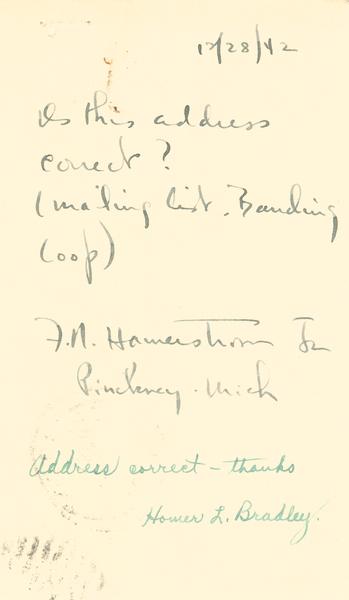 12/28/42
Is this address
correct?
(mailing list, Banding
Coop)
F. N. Hamerstrom Jr
Pinckney. Mich
Address correct - thanks
Homer L. Bradley.